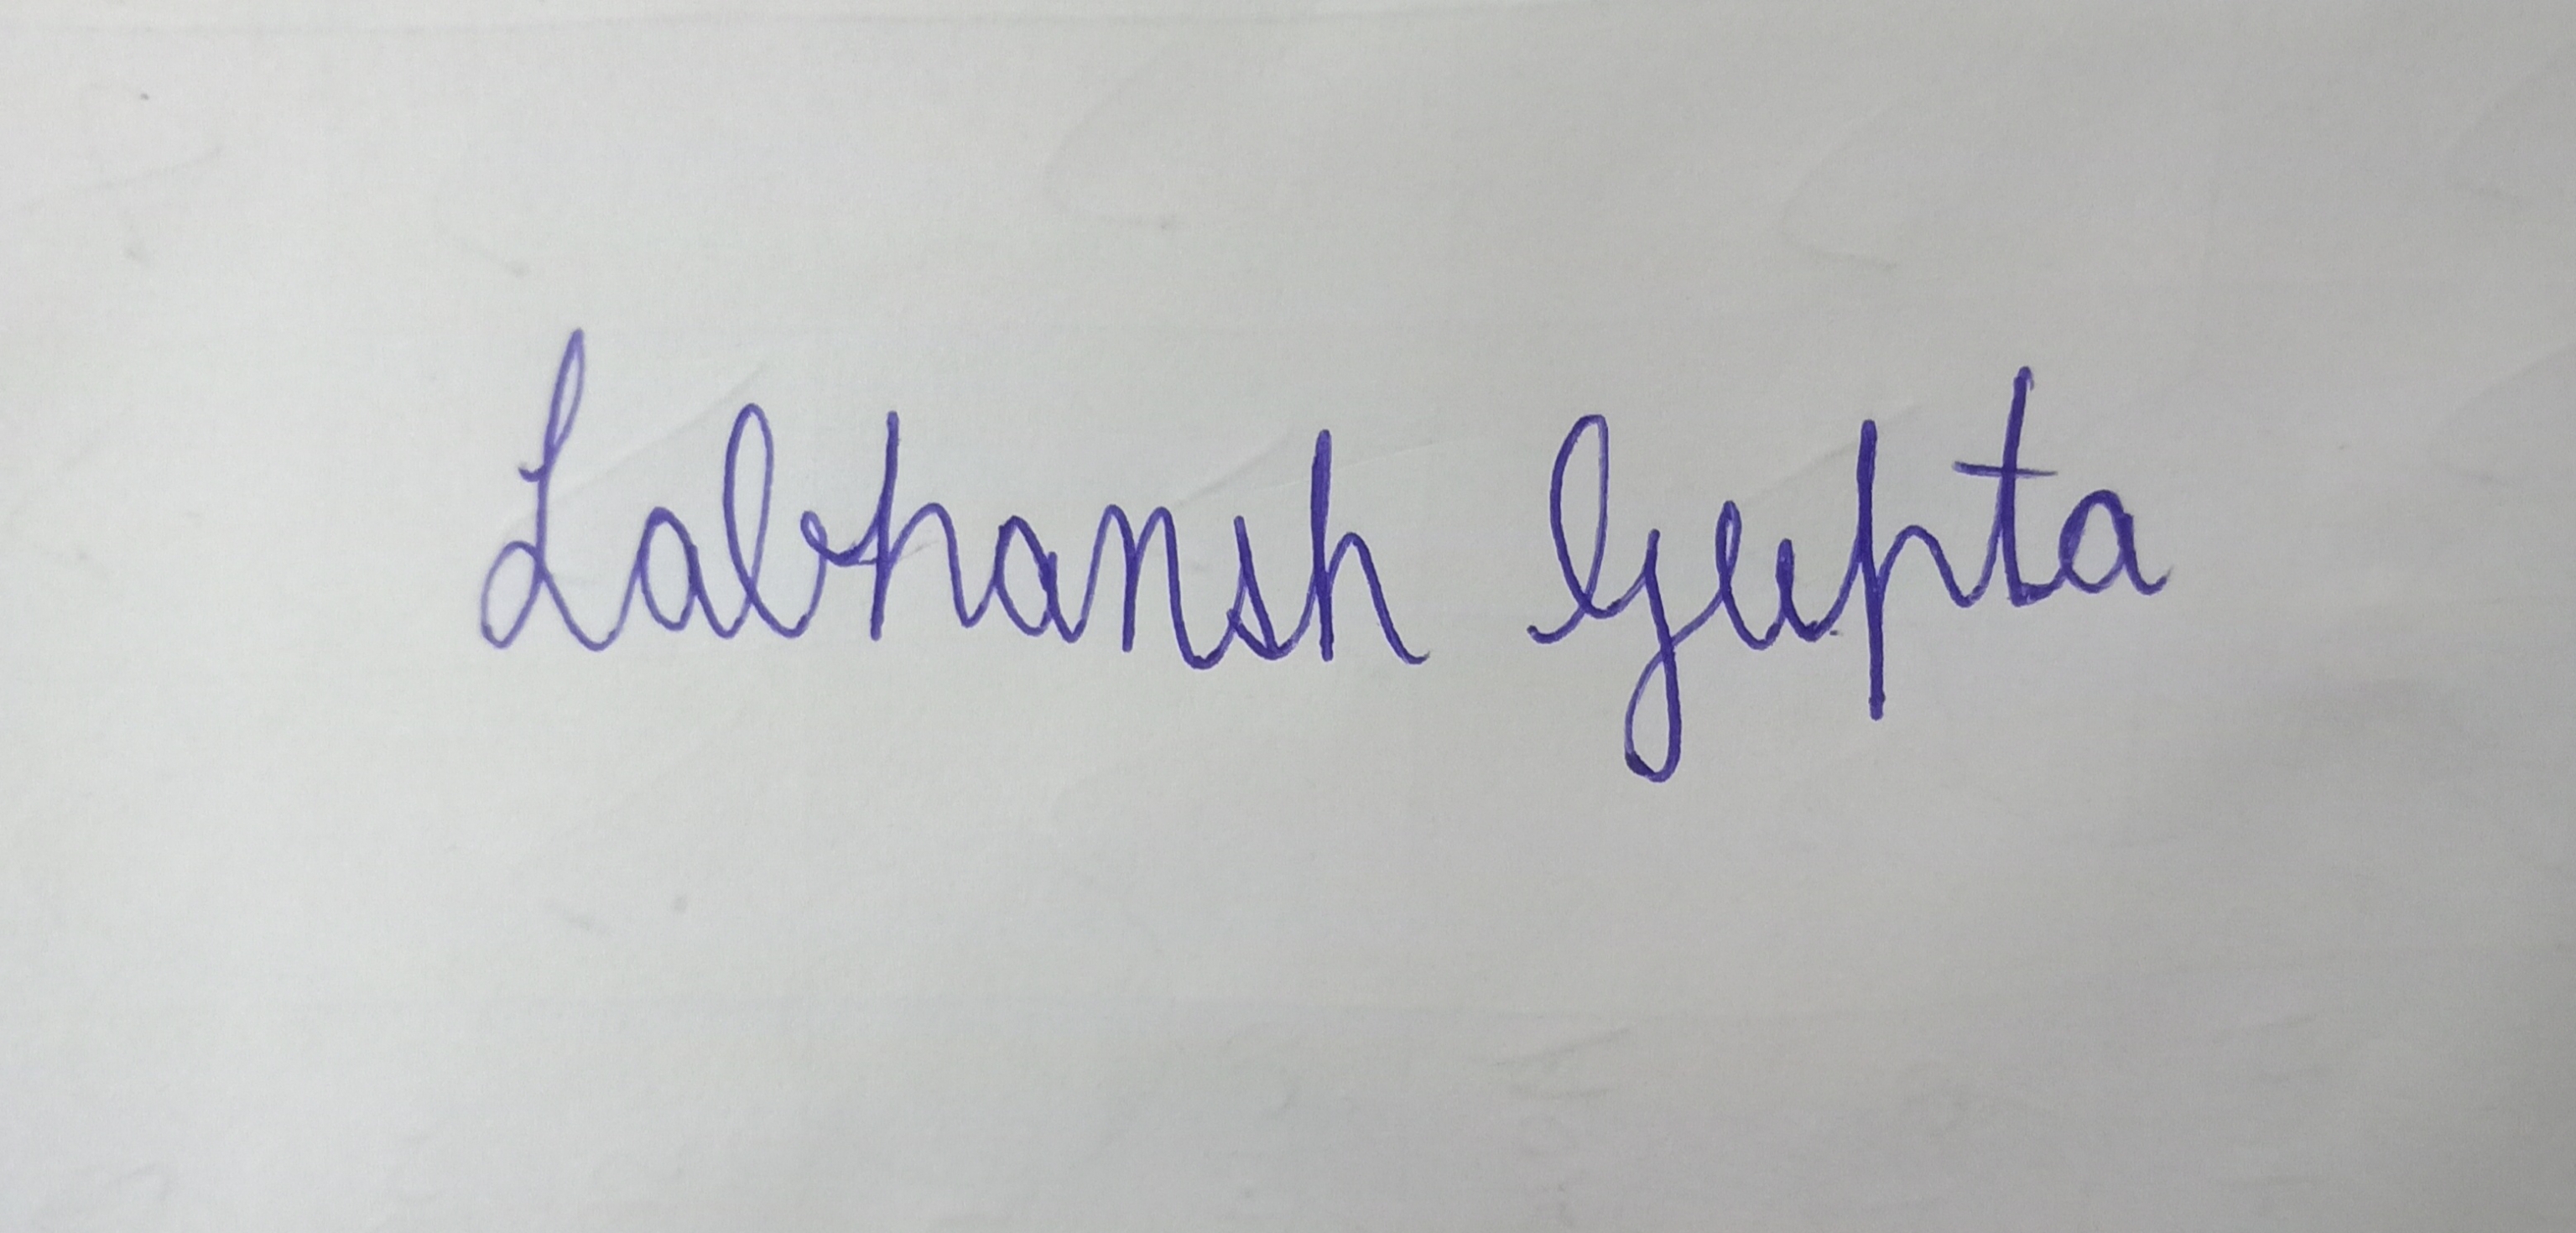 Labhansh Gupta